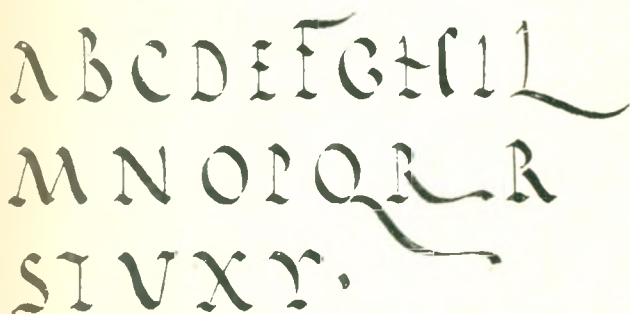 A B C D E F G H I L
M N O P Q R R
S T V X Y ·